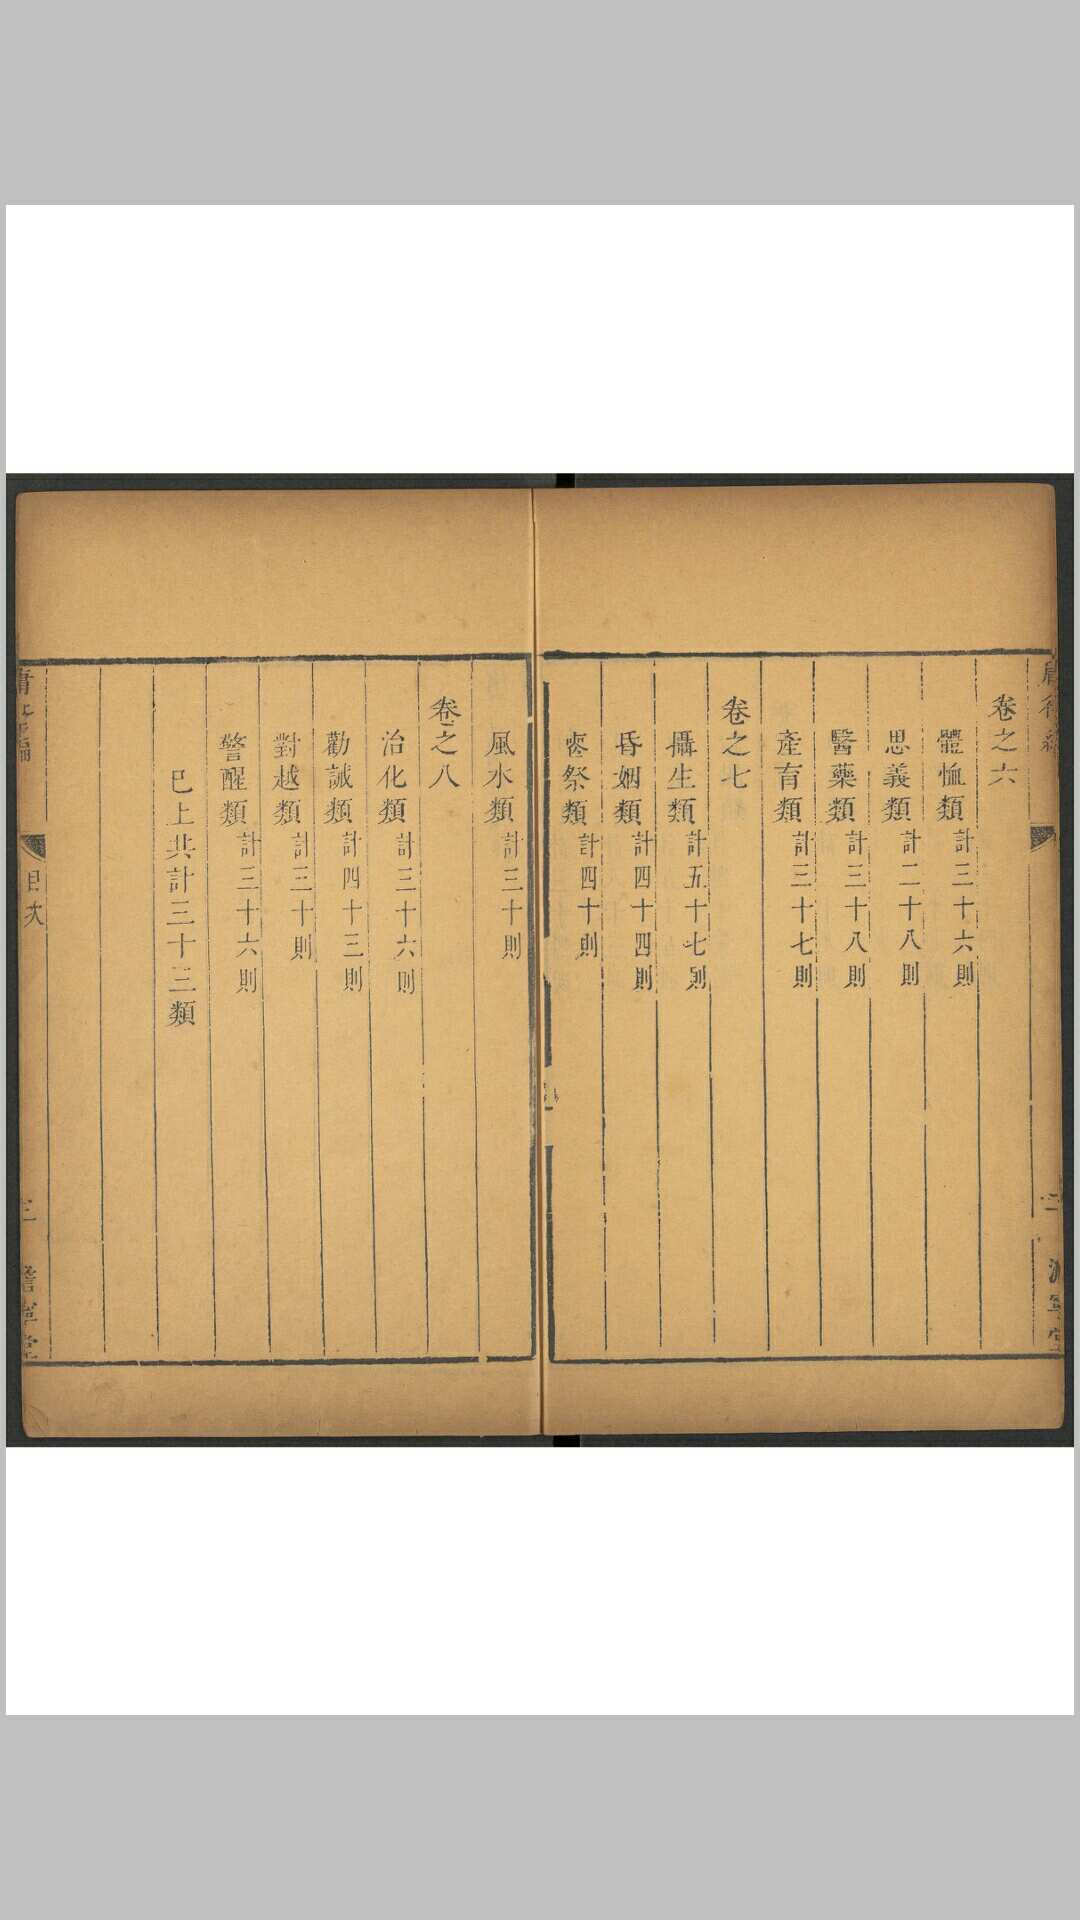 卷之六
體恤類計三十六則
思義類計二十八則
醫藥類計三十八則
產育類計三十七則
卷之七
攝生類計五十七則
昏姻類計四十四則
喪祭類計四十則
風水類計三十則
卷之八
治化類計三十六則
勸誡類計四十三則
對越類計三十則
警醒類計三十六則
已上共計三十三類
目次
三